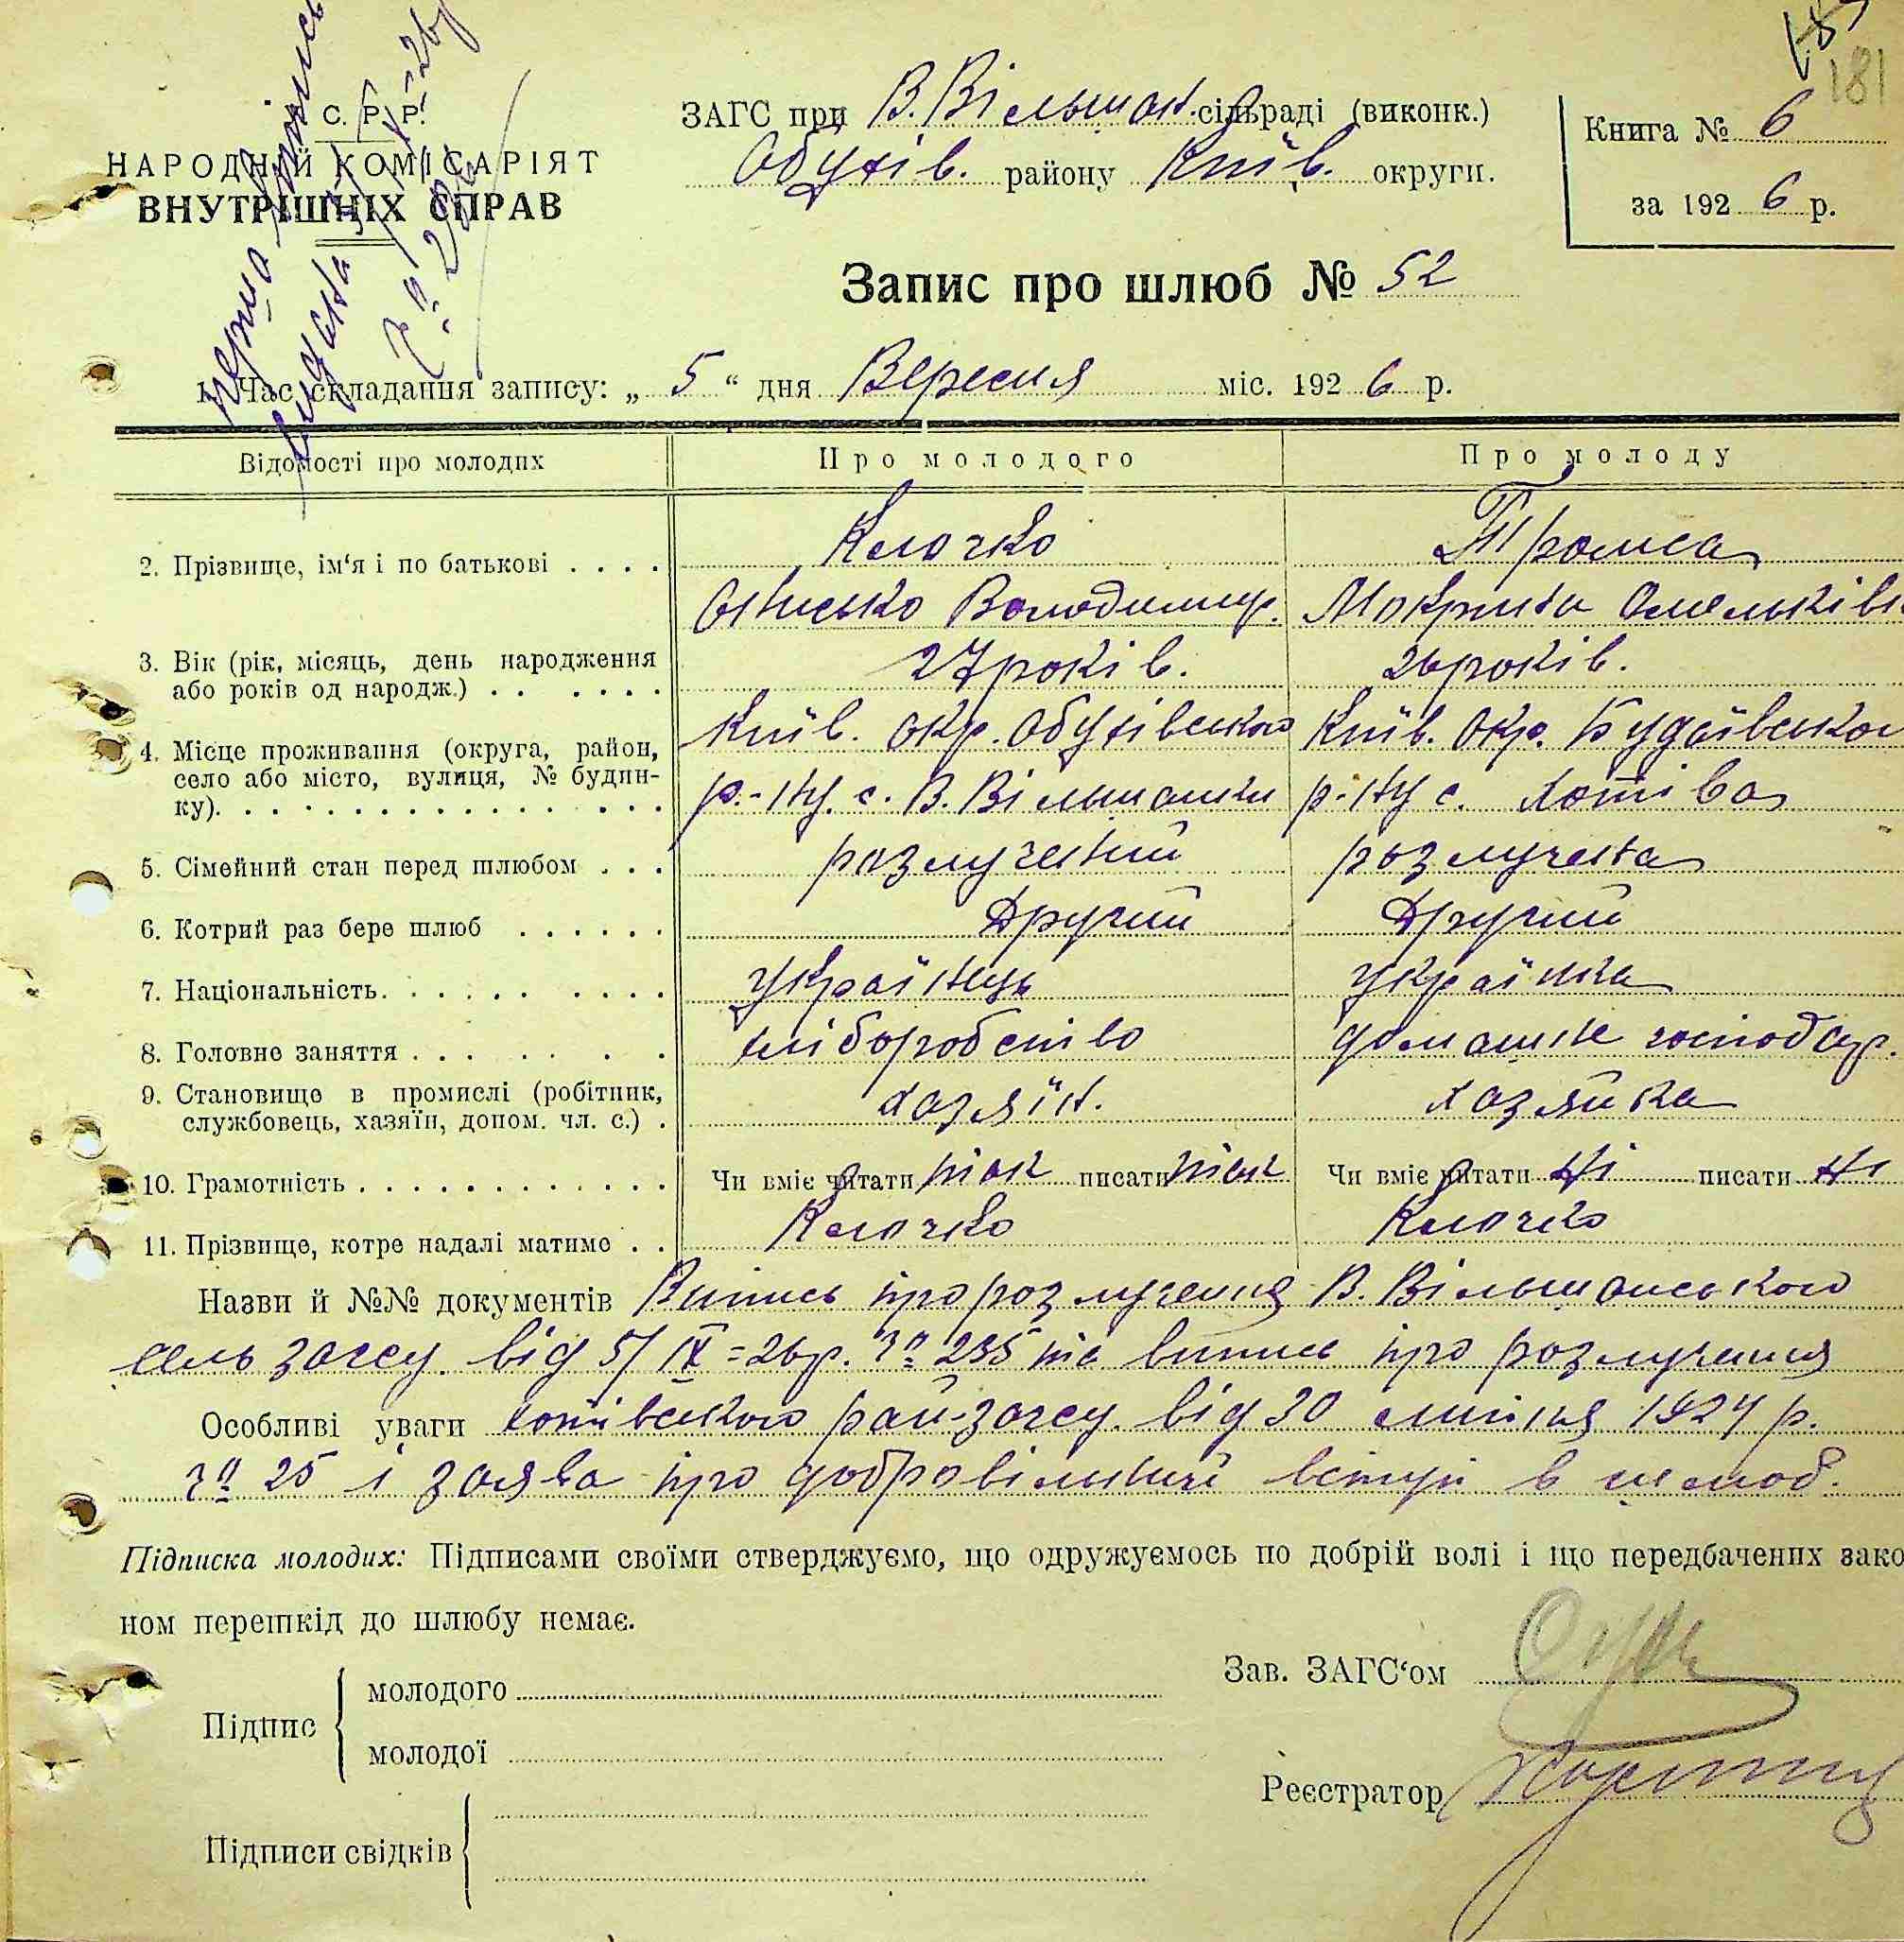 181
У. С. Р. Р.
НАРОДНІЙ КОМІСАРІЯТ
ВНУТРІШНІХ СПРАВ
перша випись
видана
ЗАГС при В. Вільшан. сільраді (виконк.)
Обухів. району Київ. округи.
Книга № 6
за 1926 р.
Запис про шлюб № 52
1. Час складання запису: „ 5 “ дня Вересня міс. 1926 р.
Відомості про молодих Про молодого Про молоду
2. Прізвище, ім‘я і по батькові . . . . Клочко
Онисько Володимир. Мокрина Омельківн
3. Вік (рік, місяць, день народження
або років од народж.) . . . . . . 27 років. 26 років.
4. Місце проживання (округа, район,
село або місто, вулиця, № будин-
ку). Київ. окр. Обухівського Київ. Окр. Будаївсього
р.-ну. с. В. Вільшанки р-ну с. Хотіва
5. Сімейний стан перед шлюбом . . . розлучений розлучена
6. Котрий раз бере шлюб . . . . . . Другий Другий
7. Національність. українець українка
8. Головне заняття хліборобство домашнє господар.
9. Становище в промислі (робітник,
службовець, хазяїн, допом. чл. с.) . хазяїн. хазяйка
10. Грамотність Чи вміє читати так писати так Чи вміє читати ні писати ні
11. Прізвище, котре надалі матиме . . Клочко Клочко
Назви й №№ документів Випись про розлучення В. Вільшанського
сельзагсу від 5/IX=26р. № 235 та випись про розлучення
Особливі уваги Хотівського рай-загсу. від 30 липня 1924 р.
№ 25 і заява про добровільний вступ в шлюб.
Підписка молодих: Підписами своїми стверджуємо, що одружуємось по добрій волі і що передбачених зако
ном перешкід до шлюбу немає.
Зав. ЗАГС‘ом
Підпис
молодого
молодої
Реєстратор
Підписи свідків